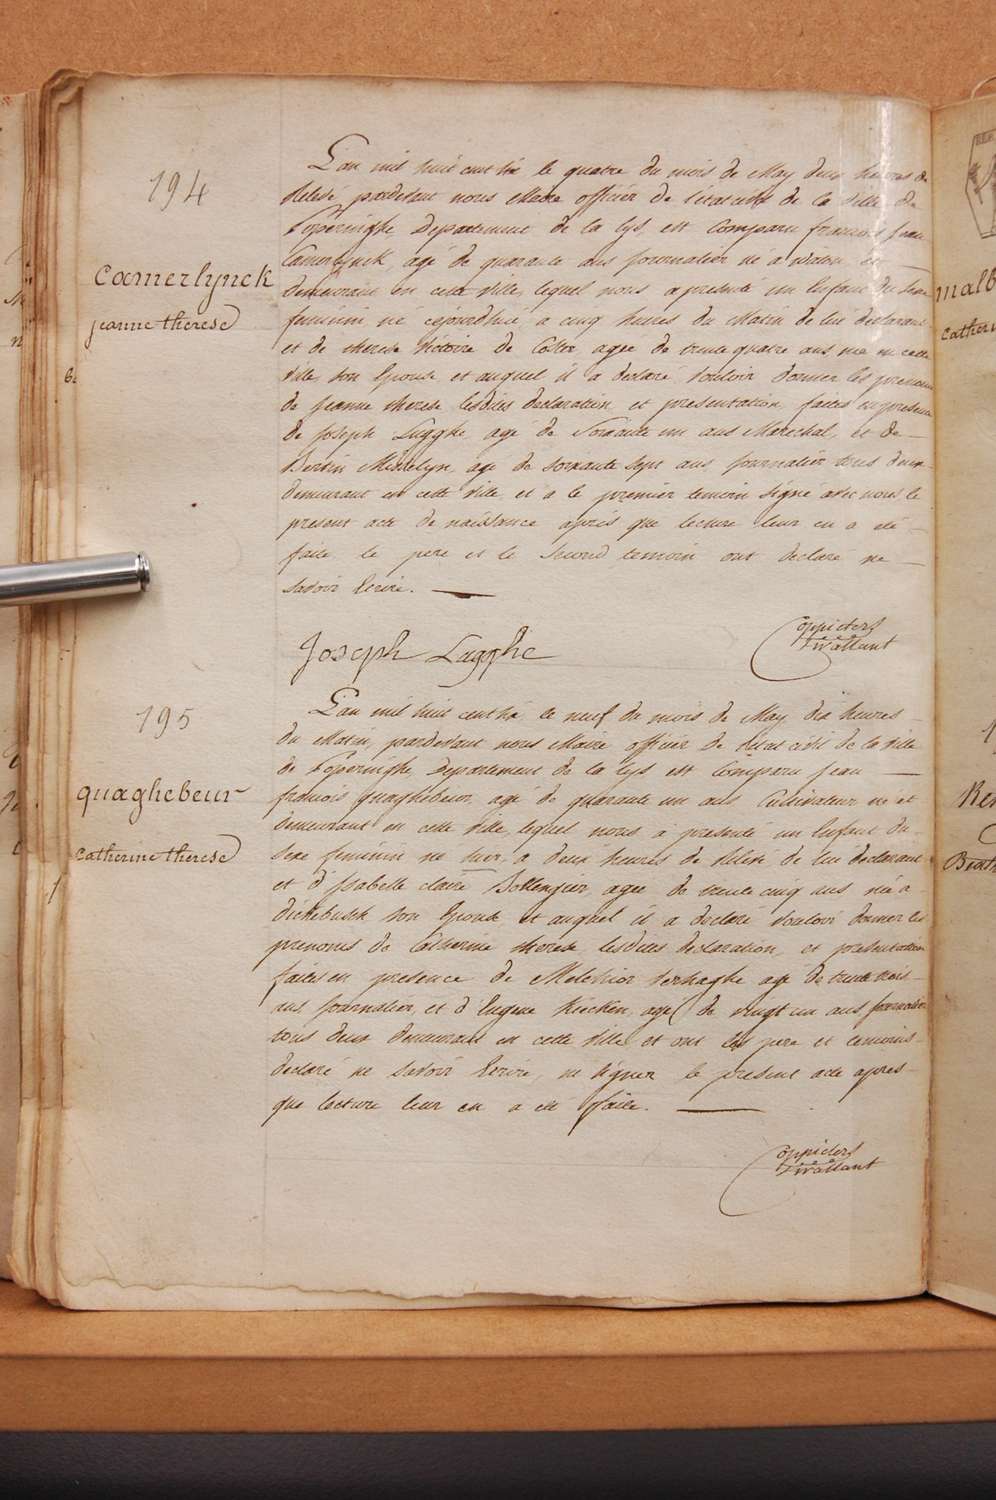 194
Camerlynck
jeanne therese
L'an mil huit cent six le quatre du mois de May deux heures de
Relevé pardevant nous Maire officier de l'état civil de la ville de
Poperinghe Departement de la Lys, est comparu francois jean
Camerlynck agé de quarante ans journalier né a Watou et
demeurant en cette ville, lequel nous a presenté un Enfant du sexe
feminin né cejourdhui a cinq heures du Matin de lui declarant
et de therese Victoire de Coster agee de trente quatre ans née en cette
ville, son Epouse et auquel il a declaré vouloir donner les prenoms
de jeanne therese lesdites declaration et presentation faites en presence
de Joseph Lagghe agé de Soixante un ans Marechal, et de
Bertin agé de soixante sept ans journalier tous deux
demeurant en cette ville et a le premier temoin signé avec nous le
present acte de naissance après que lecture leur en a été
faite le pere et le second temoin ont declare ne
savoir Ecrire.
Joseph Lagghe
Coppieters
Stivallant
195
quaghebeur
catherine therese
L'an mil huit cent six le neuf du mois de May dix heures
du Matin, pardevant nous Maire officier de l'état civil de la ville
de Poperinghe Departement de la Lys est comparu jean
francois quaghebeur, agé de quarante un ans Cultivateur né et
demeurant en cette ville, lequel nous a presenté un Enfant du
sexe feminin né hier a deux heures de Relevé de lui declarant
et d'Isabelle claire agee de trente cinq ans née a
dickebusch son Epouse et auquel il a declaré vouloir donner les
prenoms de Catherine therese lesdites declaration et presentation
faites en presence de Melchior Verhaghe agé de trente trois
ans journalier, et d'Eugene Kiecken, agé de vingt un ans journalier
tous deux demeurant en cette ville et ont les pere et temoins
declaré ne savoir Ecrire, ni signer le present acte apres
que lecture leur en a eté faite.
Coppieters
Stivallant